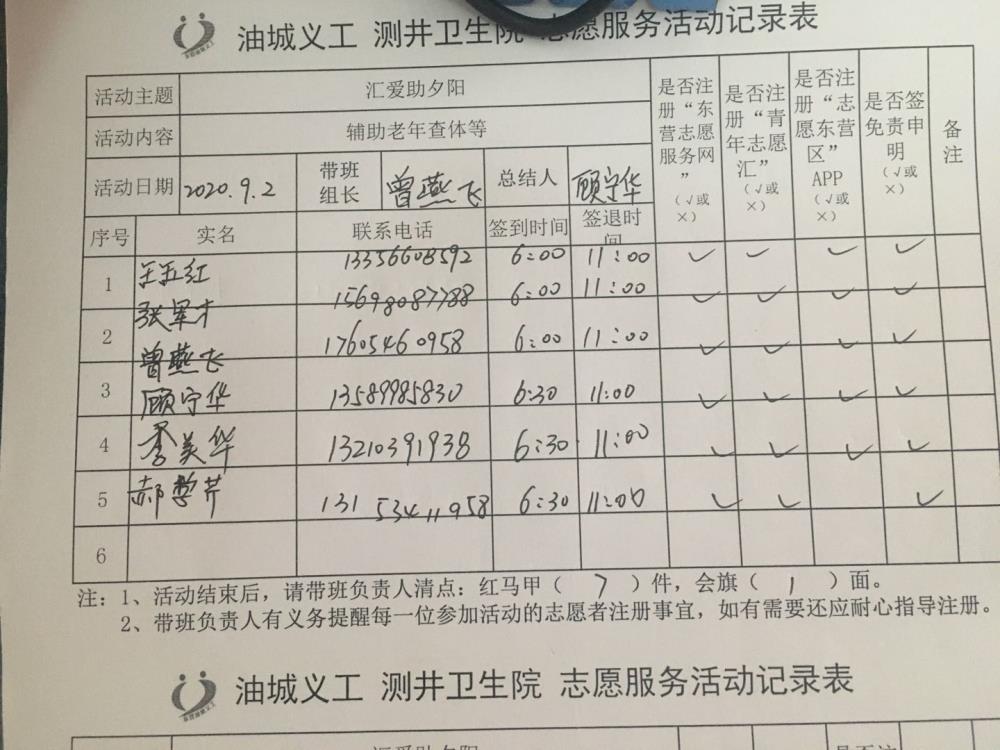 油城义工 测井卫生院 志愿服务活动记录表
活动主题 汇爱助夕阳 是否注册“东营志愿服务网”(√或×) 是否注册“青年志愿汇”(√或×) 是否注册“志愿东营区”APP(√或×) 是否签免责申明(√或×) 备注
活动内容 辅助老年查体等
活动日期 2020.9.2 带班组长 曾燕飞 总结人 顾宁华
序号 实名 联系电话 签到时间 签退时间
1 王玉红 13356608592 6:00 11:00 ✓ ✓ ✓ ✓
张军才 15698087788 6:00 11:00 ✓ ✓ ✓ ✓
2 曾燕飞 17605460958 6:00 11:00 ✓ ✓ ✓ ✓
3 顾宁华 13589985830 6:30 11:00 ✓ ✓ ✓ ✓
4 李美华 13210391938 6:30 11:00 ✓ ✓ ✓ ✓
5 郝芹 13153411958 6:30 11:00 ✓ ✓ ✓
6
注:1、活动结束后,请带班负责人清点:红马甲( 7 )件,会旗( 1 )面。
2、带班负责人有义务提醒每一位参加活动的志愿者注册事宜,如有需要还应耐心指导注册。
油城义工 测井卫生院 志愿服务活动记录表
汇爱助夕阳 是否注